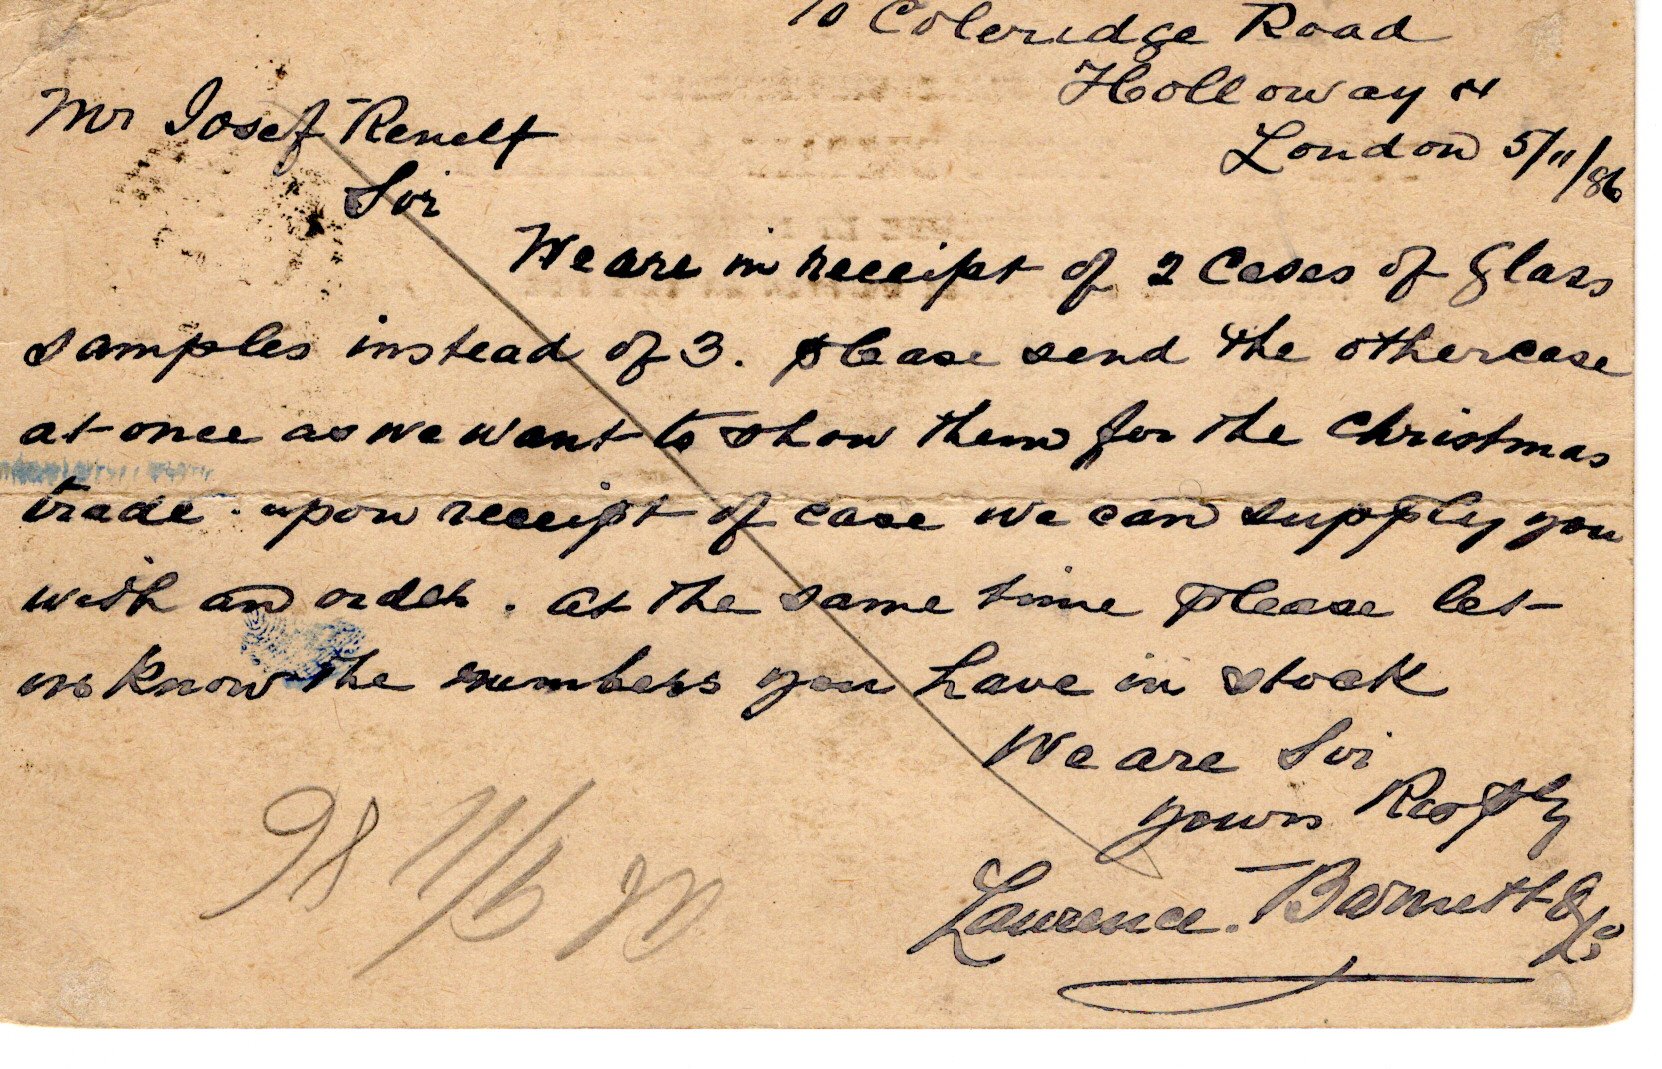 10 Coleridge Road
Holloway N
London 5/11/86
Mr Josef Renelt
Sir
We are in receipt of 2 Cases of Glass
samples instead of 3. please send the other case
at once as we want to show them for the Christmas
trade. upon receipt of case we can supply you
with an order. at the same time please let
us know the numbers you have in stock
We are Sir
yours Respfly
Laurence. Barnett & Co